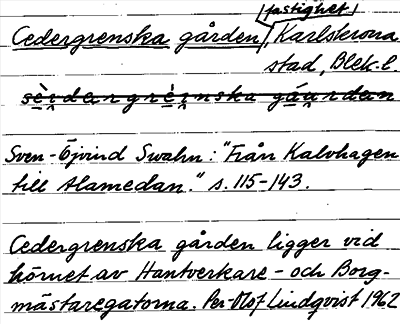 fastighet
Cedergrenska gården, Karlskrona
stad, Blek. l.
sèi̯dergrèi̯nska gáu̯rdan
Sven-Öjvind Swahn: "Från Kalvhagen
till Alamedan." s. 115-143.
Cedergrenska gården ligger vid
hörnet av Hantverkare- och Borg-
mästaregatorna. Per-Olof Lindqvist 1962